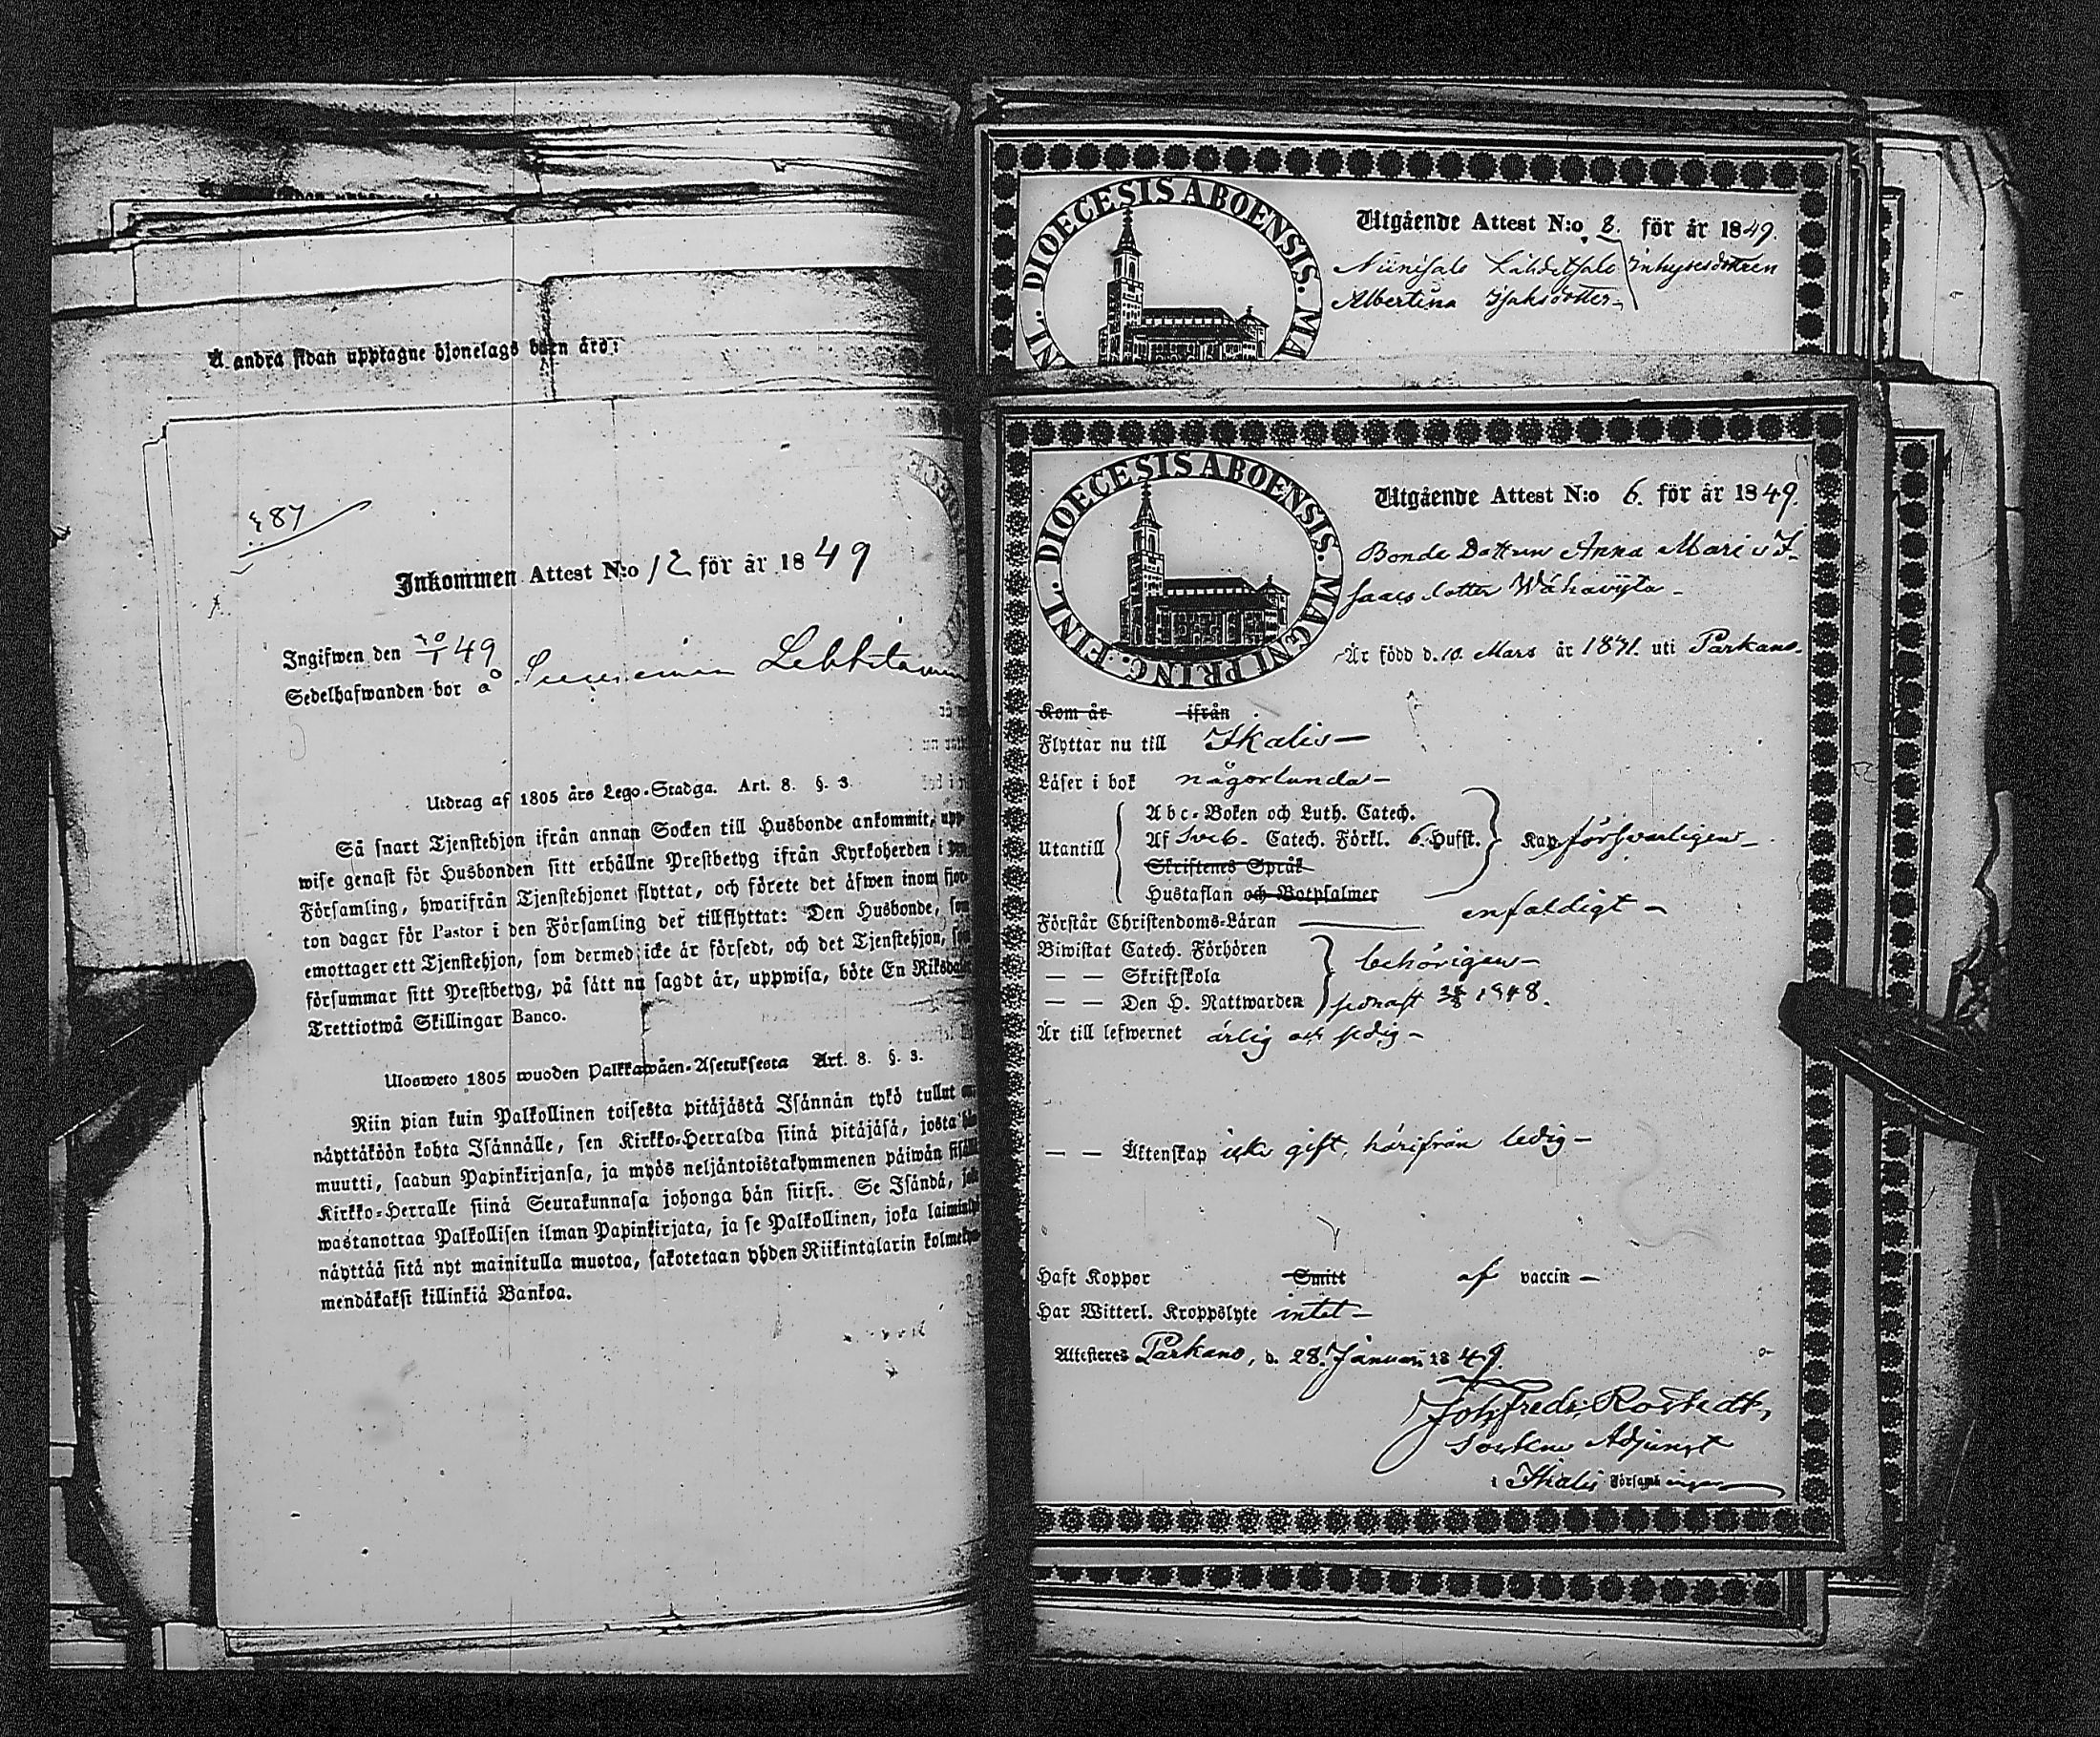 Å andra sidan upptagne hjonelags barn äro:
487
Inkommen Attest N:o 12 för år 1849
Ingifwen den 49
Sedelhafwanden bor å
Utdrag af 1805 års Lego-Stadga. Art. 8. §. 3.
Så snart Tjenstehjon ifrån annan Socken till Husbonde ankommit, upp-
wise genast för Husbonden sitt erhållne Prestbetyg ifrån Kyrkoherden i
Församling, hwarifrån Tjenstehjonet flyttat, och förete det äfwen inom fjor-
ton dagar för Pastor i den Församling det tillflyttat: Den Husbonde, som
emottager ett Tjenstehjon, som dermed icke är försedt, och det Tjenstehjon, som
försummar sitt Prestbetyg, på sätt nu sagdt är, uppwisa, böte En Riksdaler
Trettiotwå Skillingar Banco.
Ulosweto 1805 wuoden Palkkawäen-Asetuksesta Art. 8. §. 3.
Niin pian kuin Palkollinen toisesta pitäjästä Isännän tykö tullut on
näyttäköön kohta Isännälle, sen Kirkko-Herralda siinä pitäjäsä, josta hän
muutti, saadun Papinkirjansa, ja myös neljäntoistakymmenen päiwän sisällä
Kirkko-Herralle siinä Seurakunnasa johonga hän siirsi. Se Isändä, joka
wastanottaa Palkollisen ilman Papinkirjata, ja se Palkollinen, joka laiminlyö
näyttää sitä nyt mainitulla muotoa, sakotetaan yhden Riikintalarin kolmekym-
mendäkaksi killinkiä Bankoa.
DIOECESIS ABOENSIS. MA
NL.
Utgående Attest N:o 8. för år 1849.
Niinisalo Inhysesdottren
Albertina Isaksdotter
DIOECESIS ABOENSIS. MAGNI PRINC. FINL.
Utgående Attest N:o 6. för år 1849.
Bonde Dottren Anna Maria I-
saacs dotter Wähawijta
Är född d. 10 Mars år 1831. uti Parkano.
Kom år ifrån
Flyttar nu till Ikalis
Läser i bok någorlunda
Utantill Abc-Boken och Luth. Catech.
Af Sveb. Catech. Förkl. 6. Hufst. Kap försvarligen
Skriftenes Språk
Hustaflan och Botpsalmer
Förstår Christendoms-Läran enfaldigt
Biwistat Catech. Förhören behörigen
— — Skriftskola
— — Den H. Nattwarden sednast 1848.
Är till lefwernet ärlig och sedig
— — Äktenskap icke gift, härifrån ledig
Haft Koppor Smitt af vaccin
Har Witterl. Kroppslyte intet
Attesteras Parkano, d. 28. Januari 1849.
Joh. Fredr. Rostedt,
Sockne Adjunct
i Ikalis Församlingen